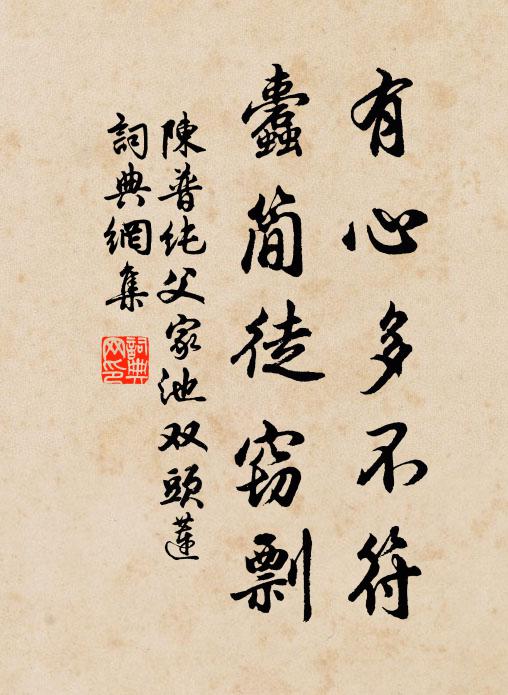 有心多不符
蠹简徒窃剽
陳普純父家池双頭蓮
詞典網集
詞典網印